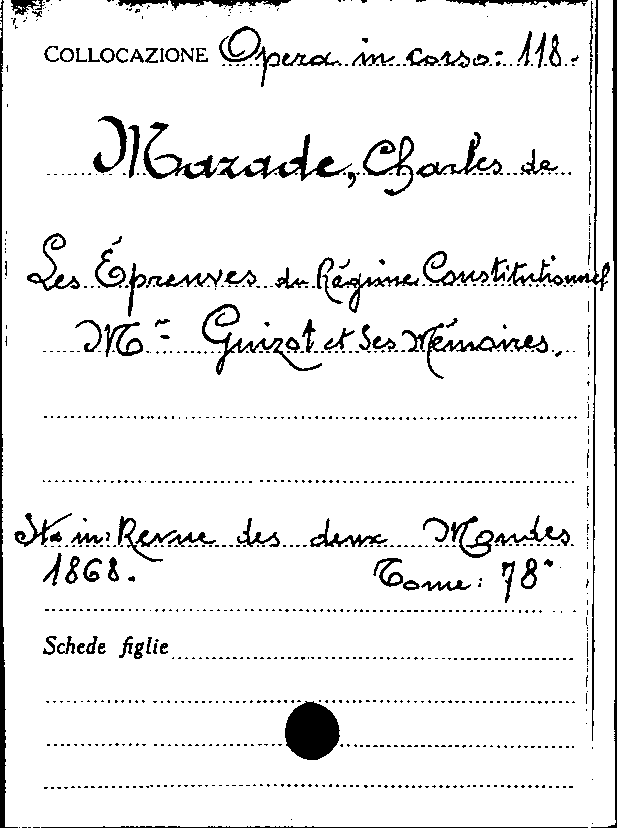 COLLOCAZIONE Opera in corso: 118.
Mazade, Charles de
Les Épreuves du Régime Constitutionnel
Mr Guizot et Ses Mémoires.
Sta in: Revue des deux Mondes
1868. Tome: 78°
Schede figlie